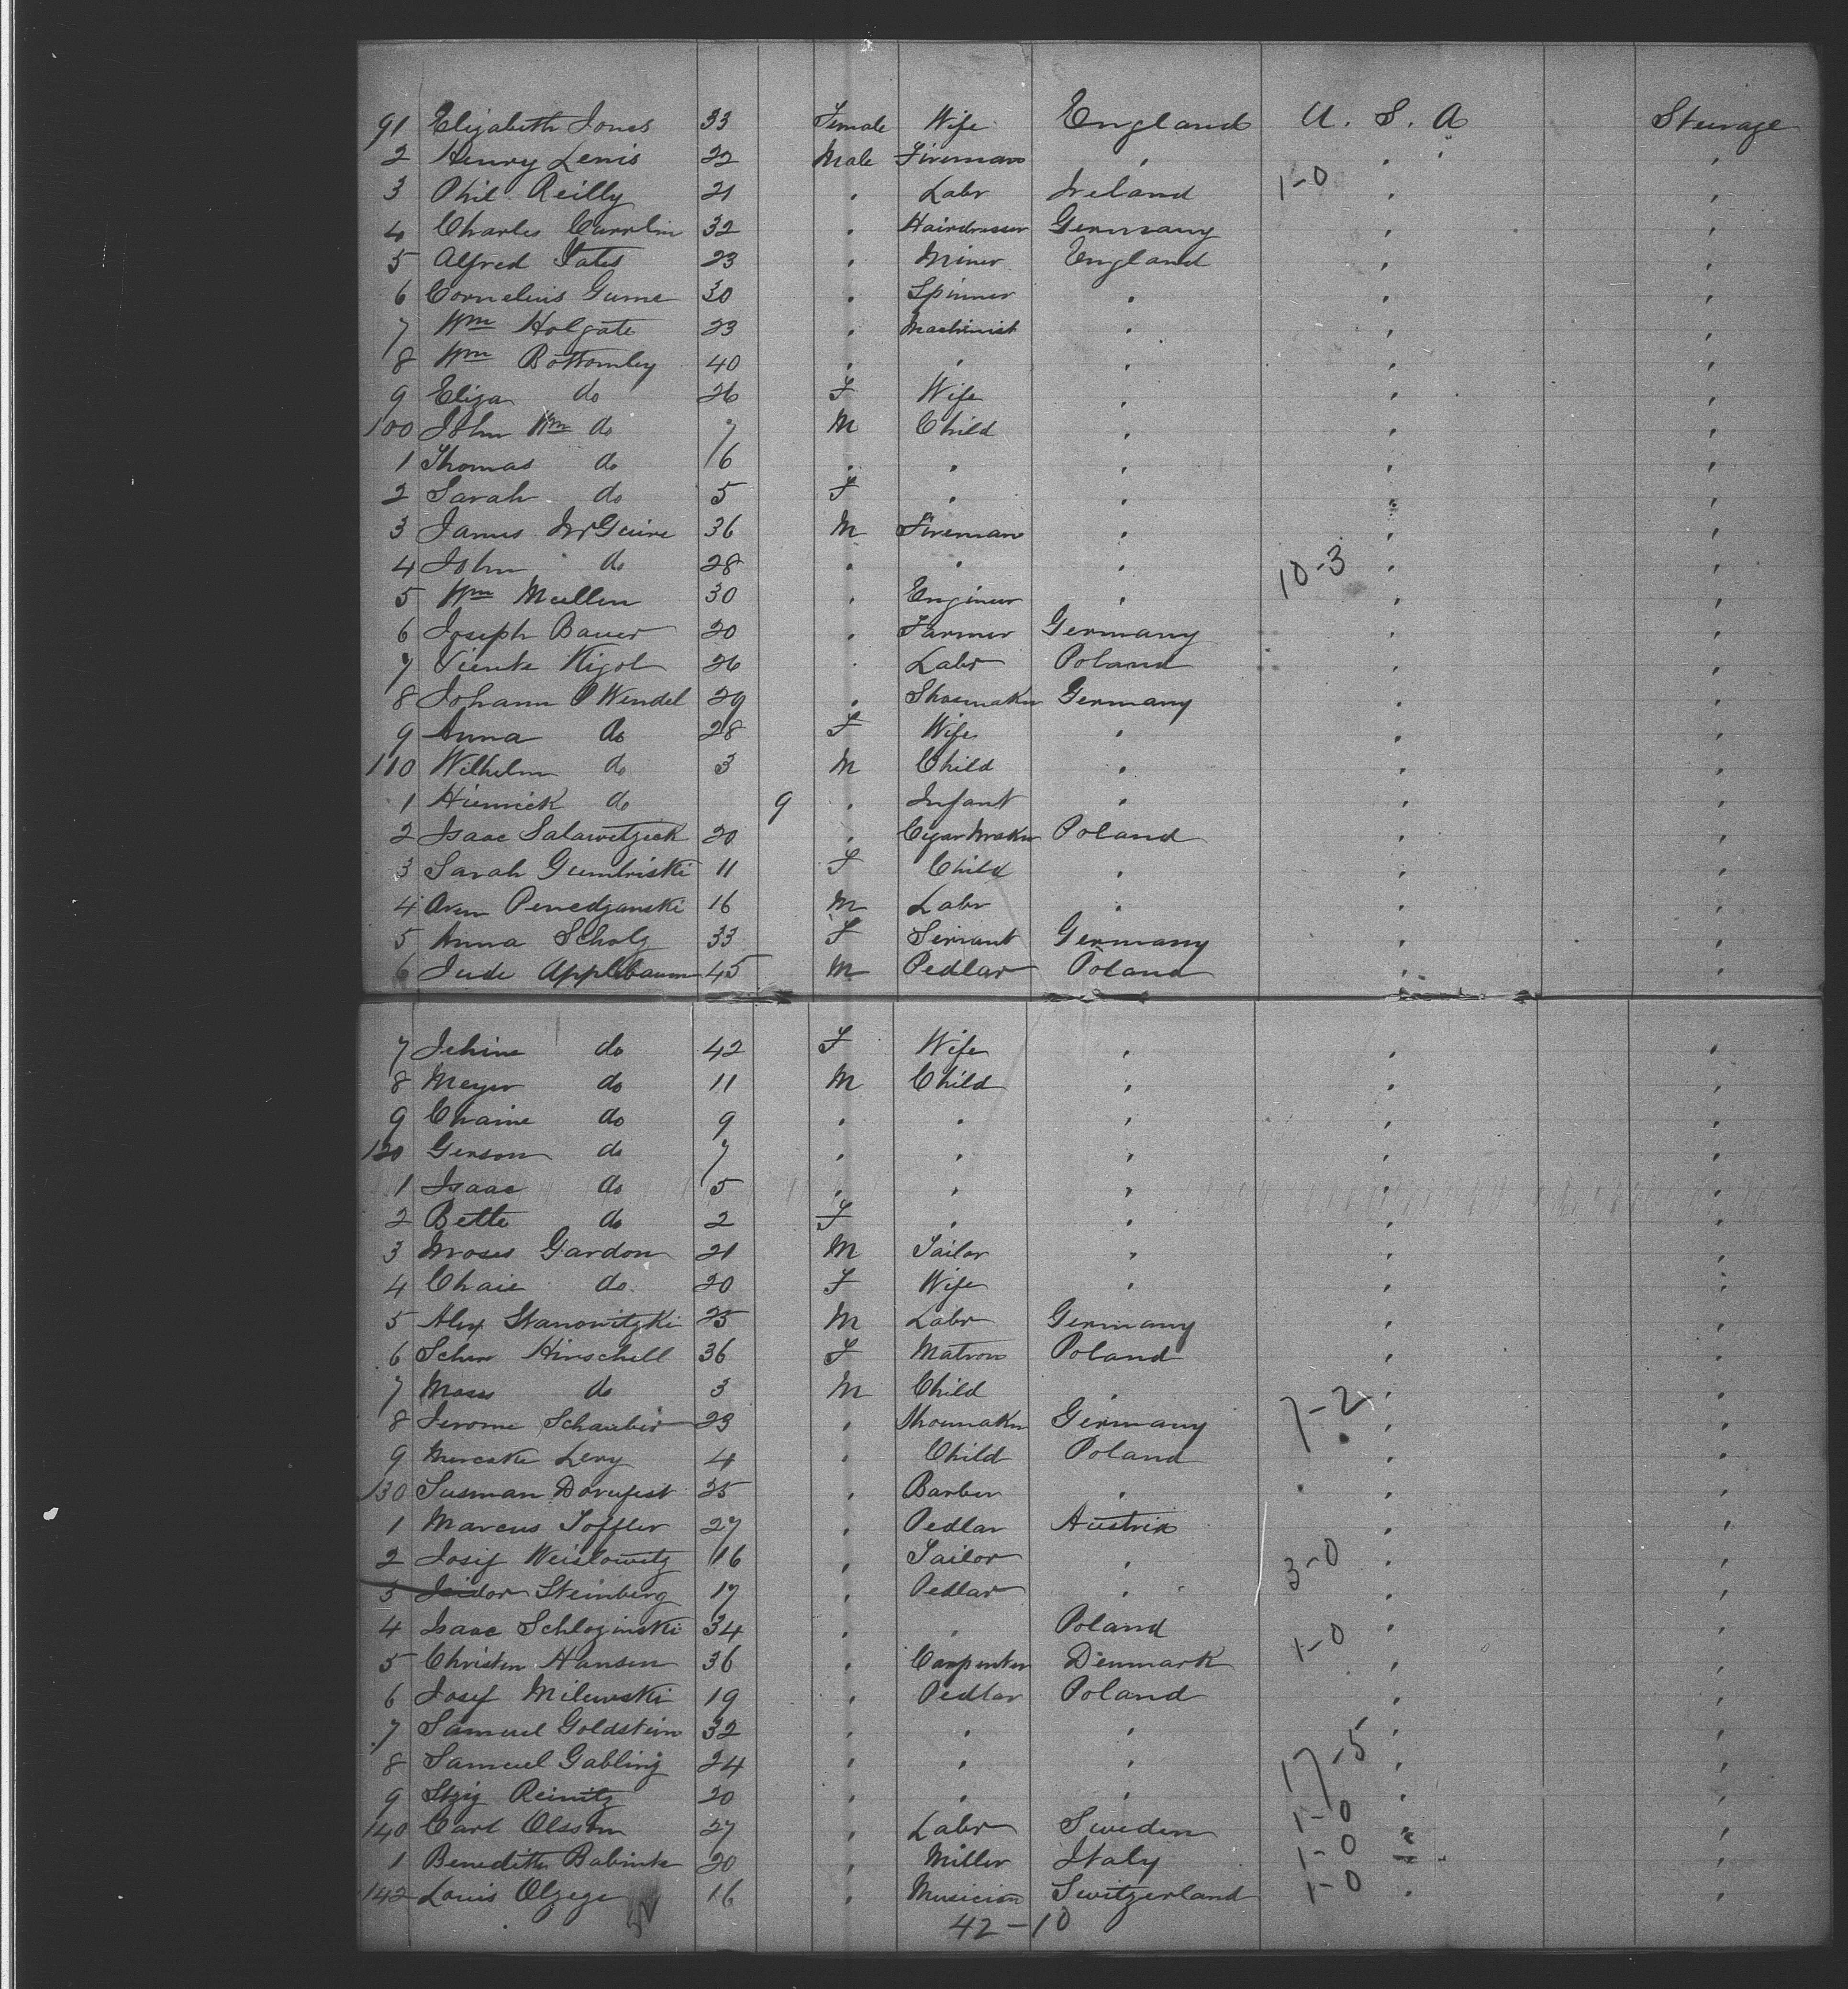 91 Elizabeth Jones 33 Female Wife England U. S. A Steerage
2 Henry Lewis 22 Male Fireman " " " "
3 Phil Reilly 21 " Labr Ireland 1-0 " "
4 Charles Currlin 32 " Hairdresser Germany " "
5 Alfred Yates 23 " Miner England " "
6 Cornelius Gume 30 " Spinner " " "
7 Wm Holgate 23 " Machinist " " "
8 Wm Bottomley 40 " " " " "
9 Eliza do 26 F Wife " " "
100 John Wm do 7 M Child " " "
1 Thomas do 6 " " " " "
2 Sarah do 5 F " " " "
3 James McGuire 36 M Fireman " " "
4 John do 28 " " " 10-3 " "
5 Wm Mullen 30 " Engineer " " "
6 Joseph Bauer 20 " Farmer Germany " "
7 Viente Kigol 26 " Labr Poland " "
8 Johann P Wendel 29 " Shoemaker Germany " "
9 Anna do 28 F Wife " " "
110 Wilhelm do 3 M Child " " "
1 Hienrick do 9 " Infant " " "
2 Isaac Salawitzeck 20 " Cigar Maker Poland " "
3 Sarah Gumbriski 11 F Child " " "
4 Aren Penedzanski 16 M Labr " " "
5 Anna Scholz 33 F Servant Germany " "
6 Jude Applebaum 45 M Pedlar Poland " "
7 Jehine do 42 F Wife " " "
8 Meyer do 11 M Child " " "
9 Chaine do 9 " " " " "
120 Gerson do 7 " " " " "
1 Isaac do 5 " " " " "
2 Bette do 2 F " " " "
3 Moses Gardon 21 M Tailor " " "
4 Chaie do 20 F Wife " " "
5 Alex Stanowitzki 25 M Labr Germany " "
6 Scher Hirschell 36 F Matron Poland " "
7 Moses do 3 M Child " " "
8 Jerome Schaubir 23 " Shoemaker Germany 7-2 " "
9 Mercske Levy 4 " Child Poland " "
130 Susman Dorufest 25 " Barber " " "
1 Marcus Toffler 27 " Pedlar Austria " "
2 Josif Weislowitz 16 " Tailor " 3-0 " "
3 Isidor Steinberg 17 " Pedlar " " "
4 Isaac Schloginski 34 " " Poland " "
5 Christen Hansen 36 " Carpenter Denmark 1-0 " "
6 Josef Milewski 19 " Pedlar Poland " "
7 Samuel Goldstein 32 " " " " "
8 Samuel Gabling 24 " " " 17-5 " "
9 Itzig Reinitz 20 " " " " "
140 Carl Olsson 27 " Labr Sweden 1-0 " "
1 Benedetto Babinte 20 " Miller Italy 1-0 " "
142 Louis Olzege 16 " Musician Switzerland 1-0 " "
42-10